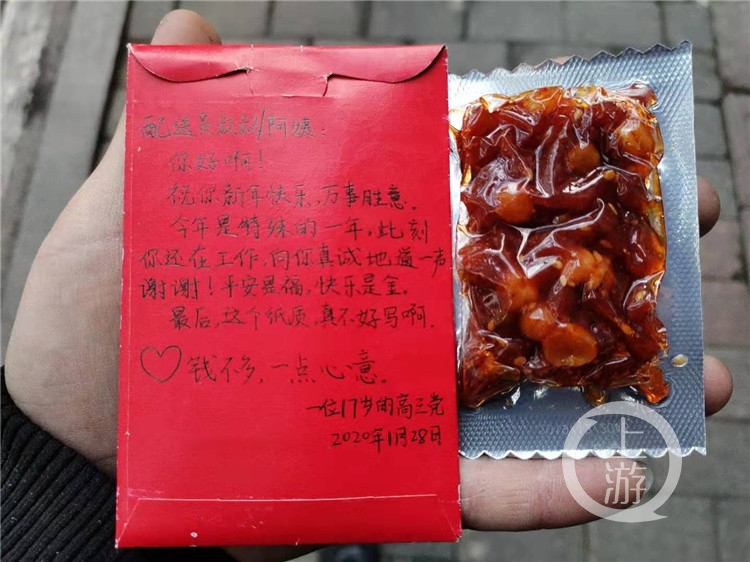 配送员叔叔/阿姨：
你好啊！
祝你新年快乐，万事胜意。
今年是特殊的一年，此刻
你还在工作，向你真诚地道一声
谢谢！平安是福，快乐是金。
最后，这个纸质，真不好写啊。
♡钱不多，一点心意。
一位17岁的高三党
2020年1月28日
上游